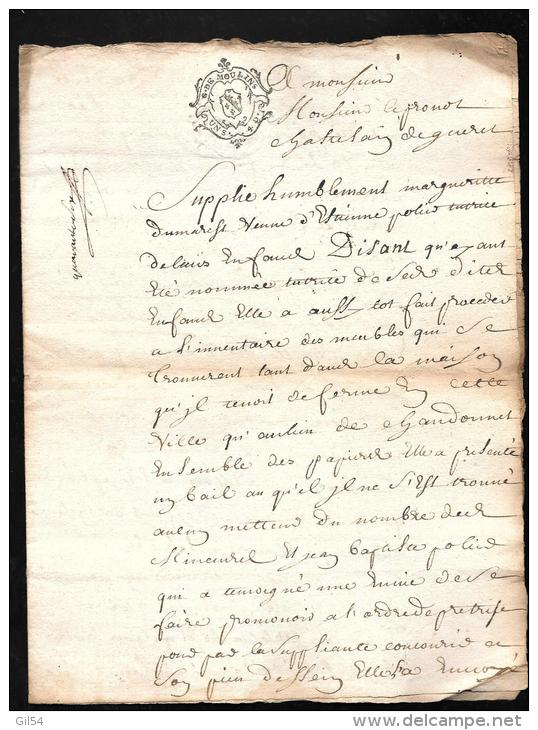 G. DE MOULINS
A monsieur
Monsieur le prevot
chastelain de gueret
Supplie humblement margueritte
dumarest veuve d'Estienne polier tutrice
de leurs Enfand Disant qu'ayant
Eté nommée tutrice de sesd dited
Enfand Elle a aussy tot fait proceder
a L'inventaire des meubles qui se
trouverent tant dand la maison
qu'jl tenoit de ferme En cette
Ville qu'au lieu de chandonnet
Ensemble des papierd Elle a presenté
un bail au qu'el jl ne s'Est trouvé
aucun metteur du nombre decd
Mineured Et jean baptiste polier
qui a temoigné une Envie de se
faire promouvoir a l'ordre de pretrise
pour par la Suppliante concourir a
son pieu dessein Elle l'a Envoyé
Gil54
www.delcampe.net